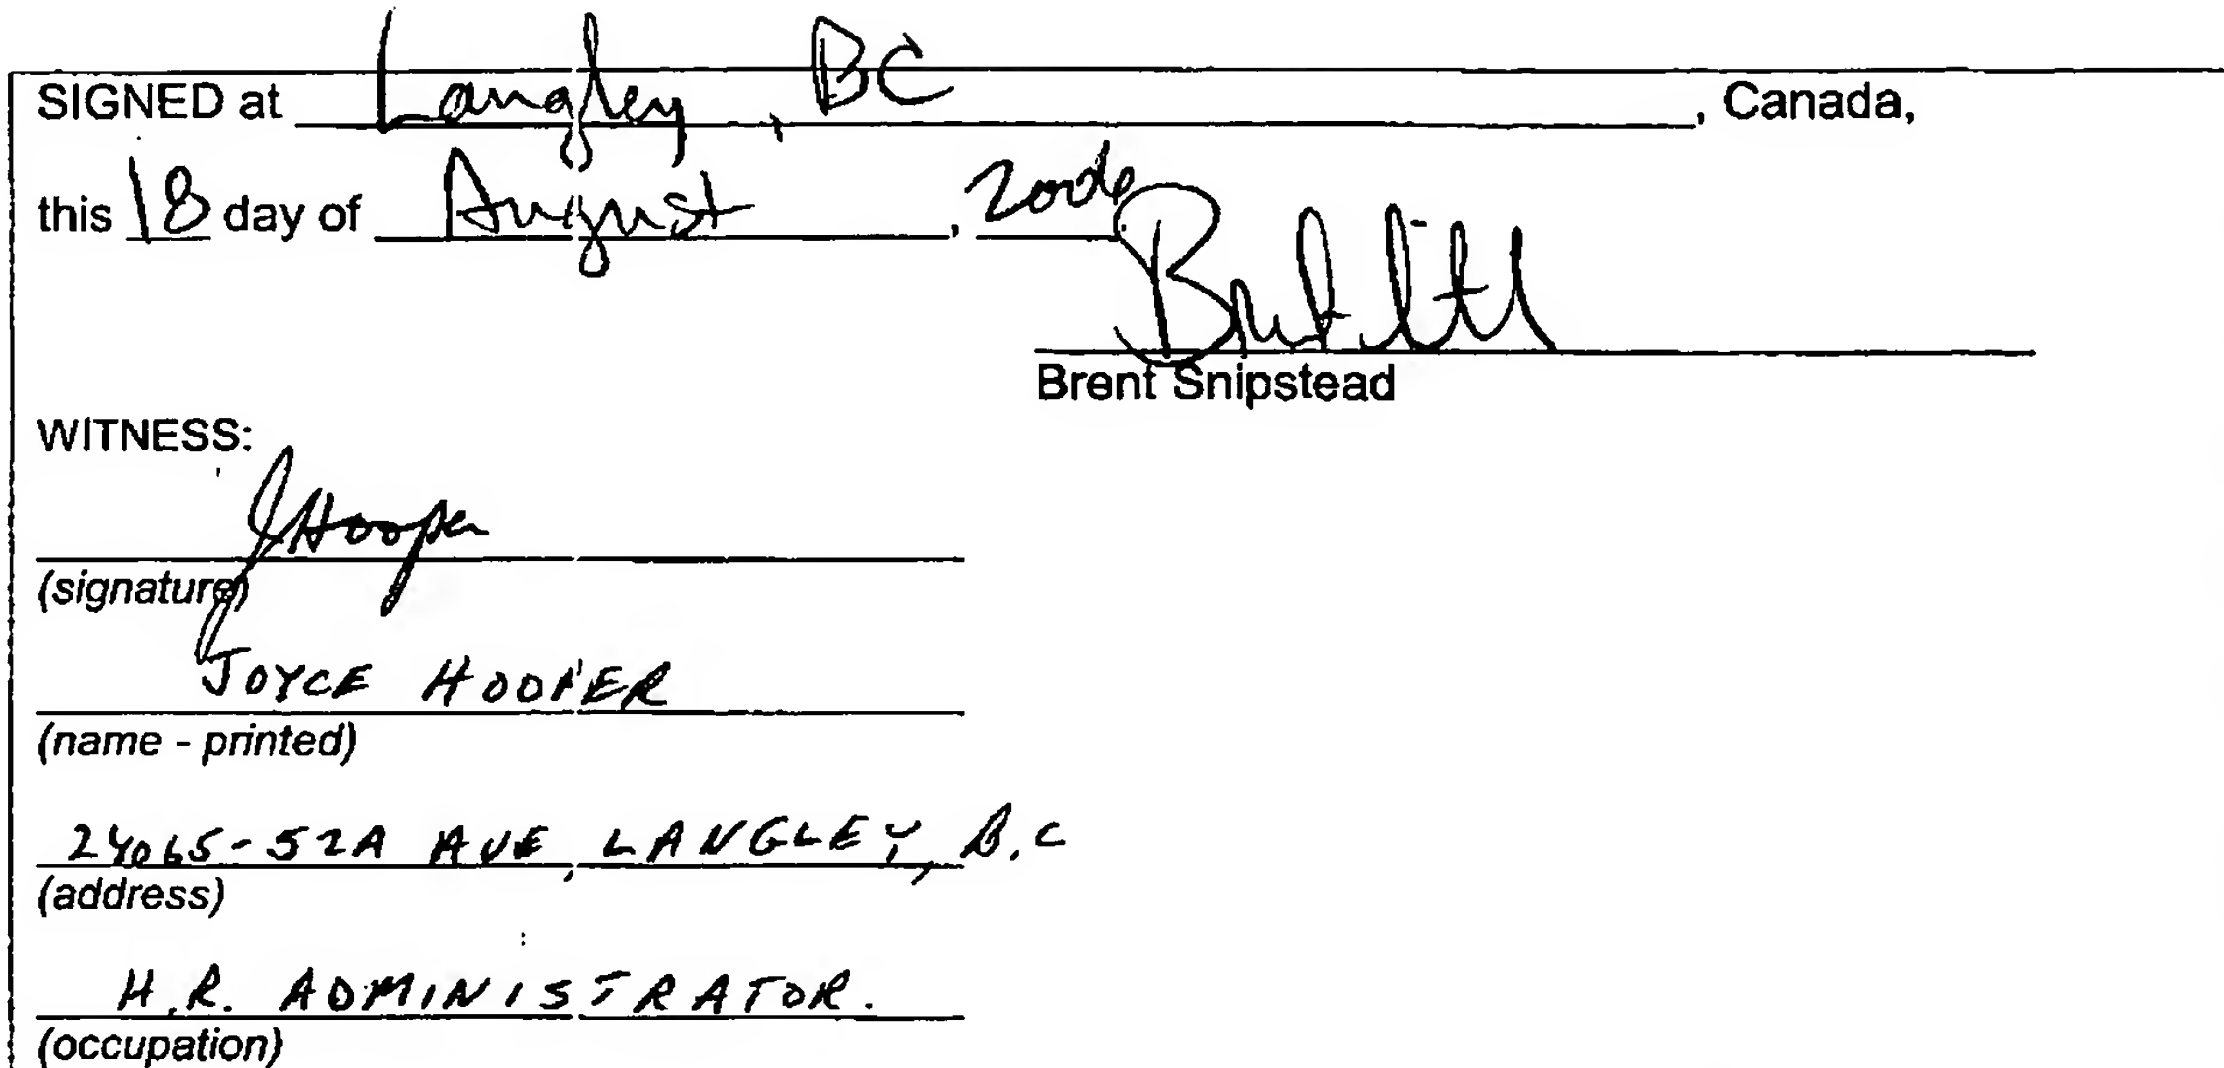 SIGNED at Langley, BC, Canada,
this 18 day of August, 2006
Brent Snipstead
WITNESS:
JHooper
(signature)
JOYCE HOOPER
(name - printed)
24065-52A AVE, LANGLEY, B.C
(address)
H.R. ADMINISTRATOR.
(occupation)